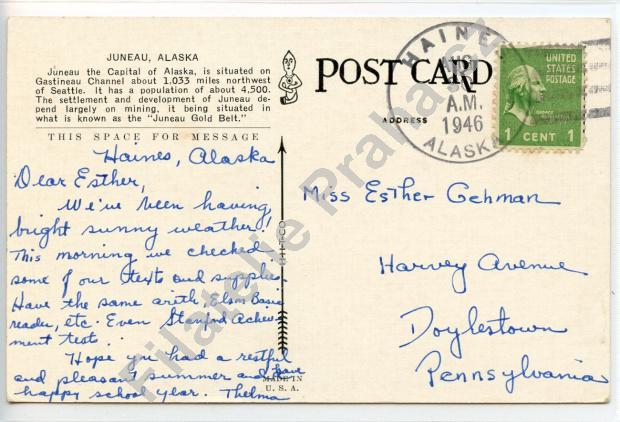 JUNEAU, ALASKA
Juneau the Capital of Alaska, is situated on
Gastineau Channel about 1,033 miles northwest
of Seattle. It has a population of about 4,500.
The settlement and development of Juneau de-
pend largely on mining, it being situated in
what is known as the "Juneau Gold Belt."
THIS SPACE FOR MESSAGE
Haines, Alaska
Dear Esther,
We've been having
bright sunny weather!
This morning we checked
some of our texts and supplies.
Have the same arith, Elson Basic
reader, etc. Even Stanford Achieve-
ment test.
Hope you had a restful
and pleasant summer and have
happy school year. Thelma
MADE IN
U. S. A.
POST CARD
ADDRESS
HAINES
A.M.
1946
ALASKA
UNITED
STATES
POSTAGE
1 CENT 1
Miss Esther Gehman
Harvey Avenue
Doylestown
Pennsylvania
Filatelie Praha.cz